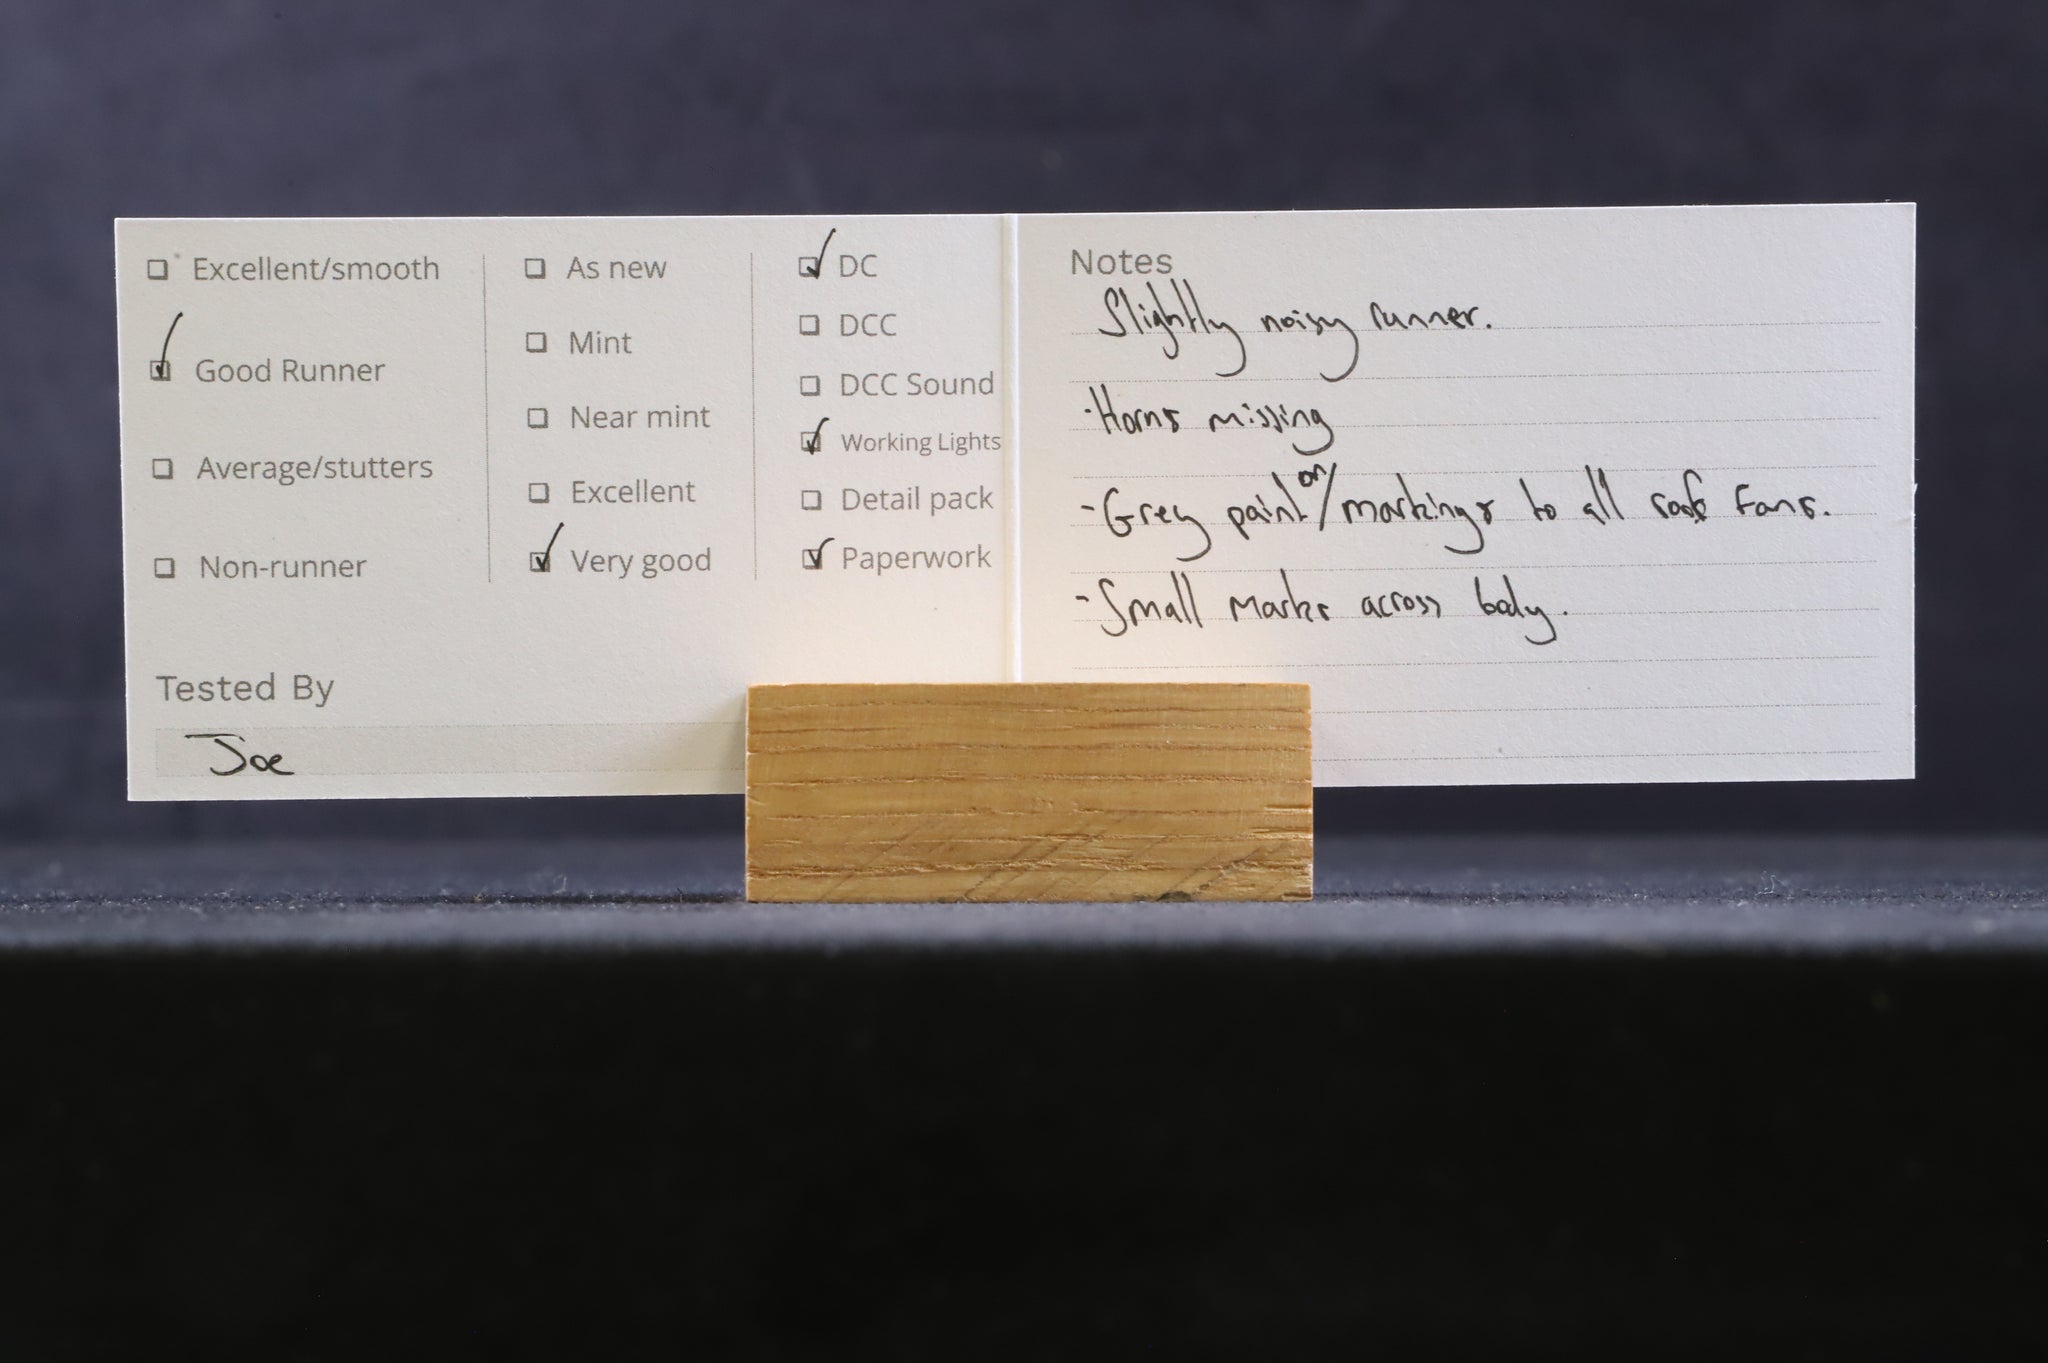 Excellent/smooth
Good Runner
Average/stutters
Non-runner
As new
Mint
Near mint
Excellent
Very good
DC
DCC
DCC Sound
Working Lights
Detail pack
Paperwork
Tested By
Joe
Notes
Slightly noisy runner.
-Horns missing
-Grey paint or/markings to all roof fans.
-Small marks across body.